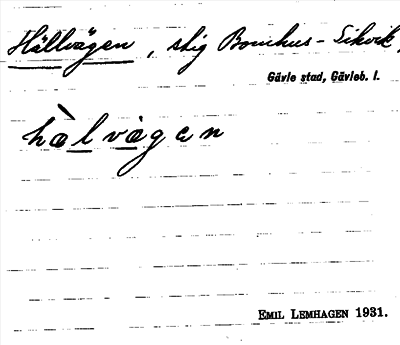 Hällvägen, stig Bomhus-Sikvik,
Gävle stad, Gävleb. l.
hàlvàgen
EMIL LEMHAGEN 1931.